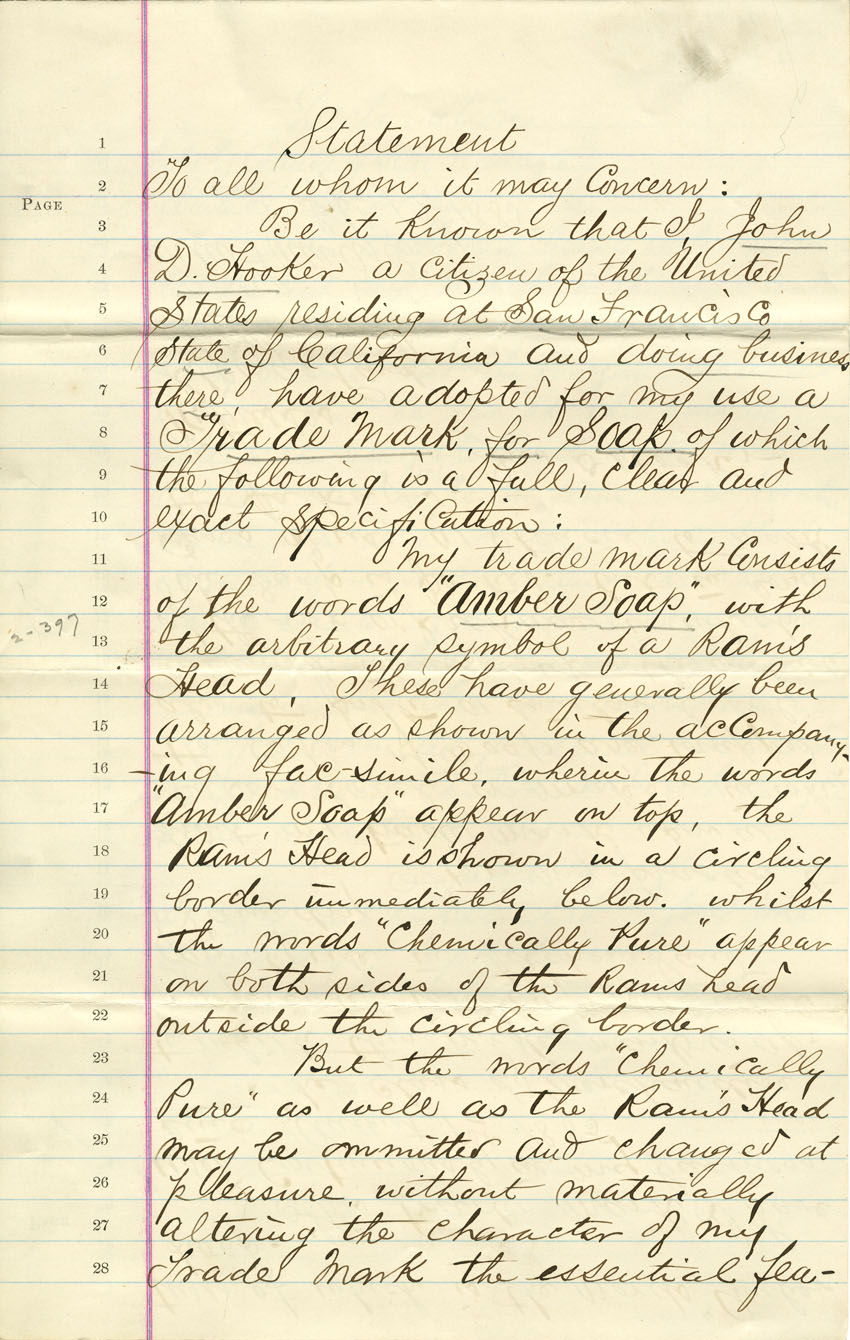 1 Statement
2 To all whom it may Concern :
PAGE
3 Be it Known that I, John
4 D. Hooker a citizen of the United
5 States residing at San Francisco
6 State of California and doing business
7 there, have adopted for my use a
8 Trade Mark, for Soap, of which
9 the following is a full, clear and
10 exact specification :
11 My trade mark Consists
12 of the words "Amber Soap", with
2-397
13 the arbitrary symbol of a Ram's
14 Head, These have generally been
15 arranged as shown in the acCompany-
16 -ing fac-simile, wherin the words
17 "Amber Soap" appear on top, the
18 Ram's Head is shown in a circling
19 border immediately below. whilst
20 the words "Chemically Pure" appear
21 on both sides of the Rams head
22 outside the circling border.
23 But the words "Chemically
24 Pure" as well as the Ram's Head
25 may be ommitted and changed at
26 pleasure, without materially
27 altering the character of my
28 Trade Mark the essential fea-